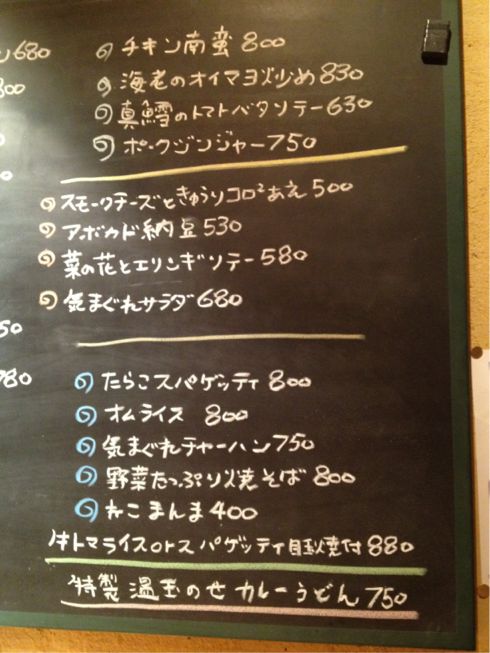 680
チキン南蛮 800
海老のオイマヨ炒め 830
真鱈のトマトバタソテー 630
ポークジンジャー 750
スモークチーズときゅうりコロ²あえ 500
アボカド納豆 530
菜の花とエリンギソテー 580
気まぐれサラダ 680
たらこスパゲッティ 800
オムライス 800
気まぐれチャーハン 750
野菜たっぷり焼そば 800
ねこまんま 400
牛トマライスorスパゲッティ目玉焼付 880
特製 温玉のせカレーうどん 750